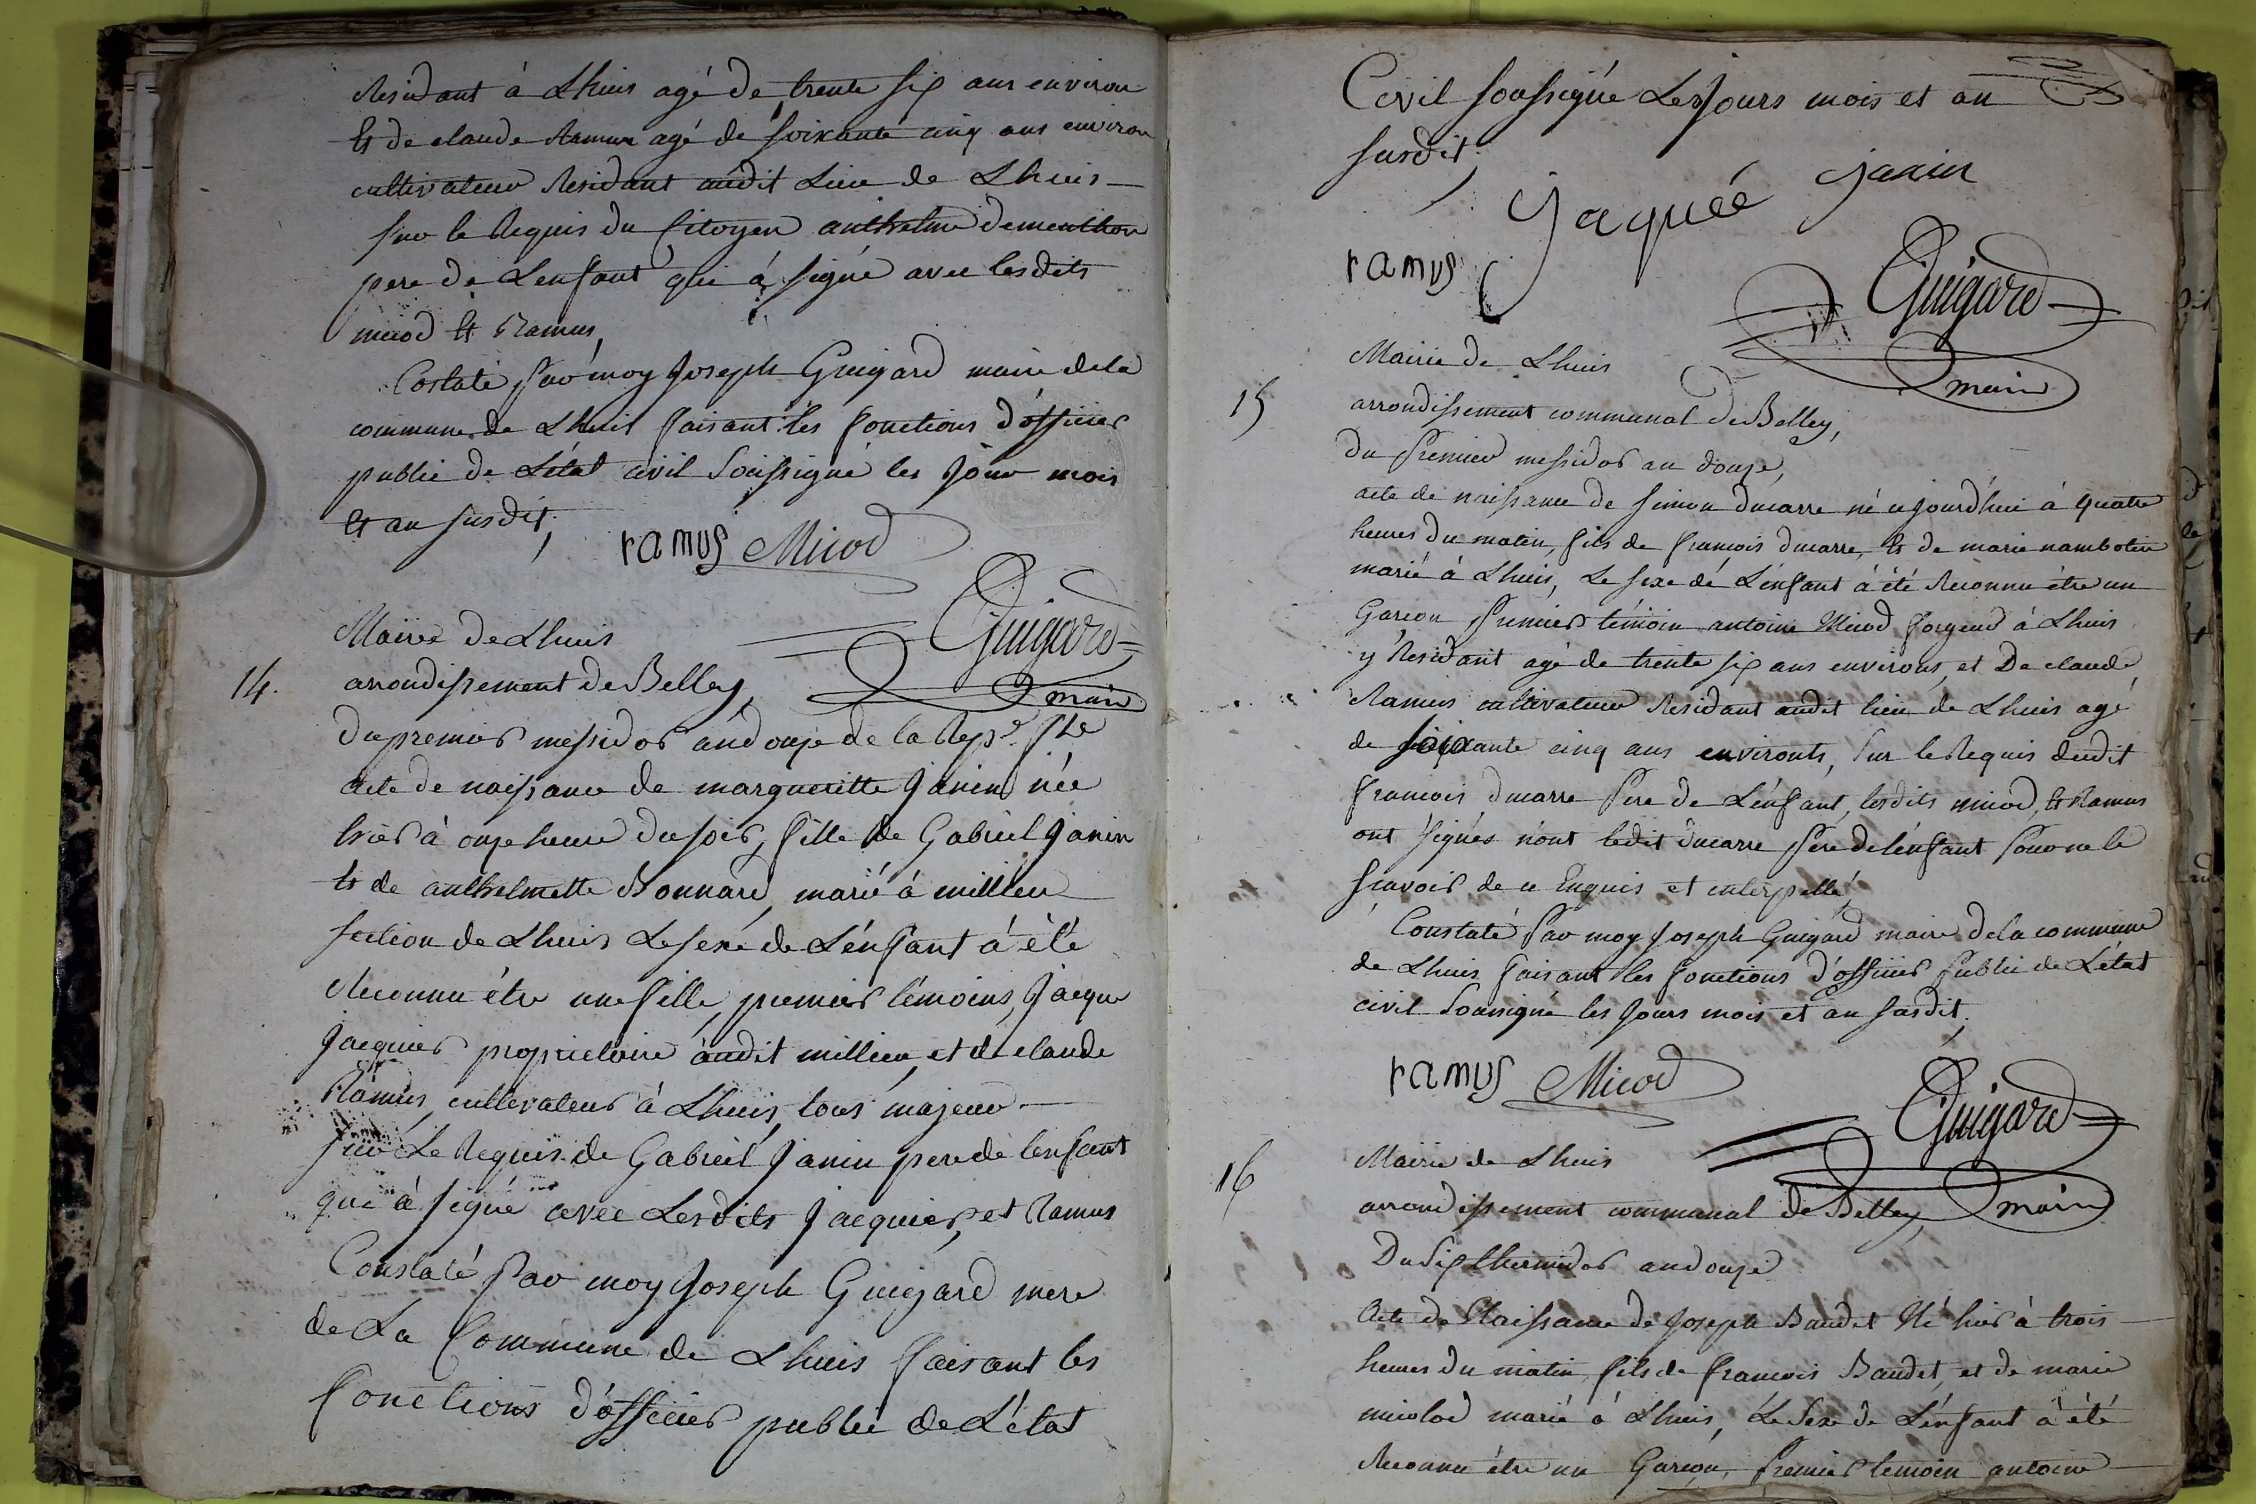 Residant á Lhuis agé de trente six ans environ
Et de claude Ramus agé de soixante cinq ans environ
cultivateur Residant audit Lieu de Lhuis
sur le Requis du Citoyen anthelme dementhon
pere de L'enfant qui á signé avec lesdits
micod Et Ramus,
Costaté par moy Joseph Guigard maire de la
commune de Lhuis faisant les fonctions d'officier
public de L'état civil Soussigné les Jour mois
Et an susdit,
ramus Micod
Guigard
maire
14.
Mairie de Lhuis
arrondissement de Belley,
Du premier messidor an douze de la Rep.e f.se
Acte de naissance de margueritte Janin née
hier à onze heure du soir, fille de Gabriel Janin
Et de anthelmette Bonnard, marié à millieu
section de Lhuis Le sexe de L'énfant á été
Reconnu étre une fille, premier témoins, Jacque
Jacquier proprietaire audit millieu, et de claude
Ramus, cultivateur à Lhuis, tous majeur
sur Le Requis de Gabriel Janin pere de lenfant
qui á signé avec Lesdits Jacquier, et Ramus
Constaté par moy Joseph Guigard mere
de La Commune de Lhuis faisant les
fonctions d'officier public de L'état
Civil soussigné Les Jours mois et an
susdit,
Jaquéé Janin
ramus
Guigard
maire
15
Mairie de Lhuis
arrondissement communal de Belley,
du Premier messidor an douze,
acte de naissance de simon ducarre né ce jourd'hui á quatre
heures du matin, fils de francois ducarre, Et de marie nambotin
marié à Lhuis, Le sexe de L'énfant á été Reconnu étre un
Garcon Premier témoin antoine Micod forgeud à Lhuis
y Residant agé de trente six ans environs, et De claude
Ramus cultivateur Residant audit lieu de Lhuis agé
de soixante cinq ans environts, sur le Requis dudit
francois ducarre Pere de L'énfant, lesdits micod, Et Ramus
ont signés n'ont ledit ducarre Pere de lénfant Pour ne le
scavoir de ce Enquis et interpellé,
Constaté Par moy Joseph Guigard maire de la commune
de Lhuis faisant les fonctions d'officier Public de L'état
civil Soussigné les Jours mois et an susdit,
ramus Micod
Guigard
maire
16
Mairie de Lhuis
arrondissement communal de Belley,
Du Six thermidor an douze
Acte de Naissance de Joseph Baudet Né hier à trois
heures du matin, fils de francois Baudet, et de marie
miolod marié à Lhuis, Le Sexe de L'énfant á été
Reconnu étre un Garcon, Premier temoin antoine